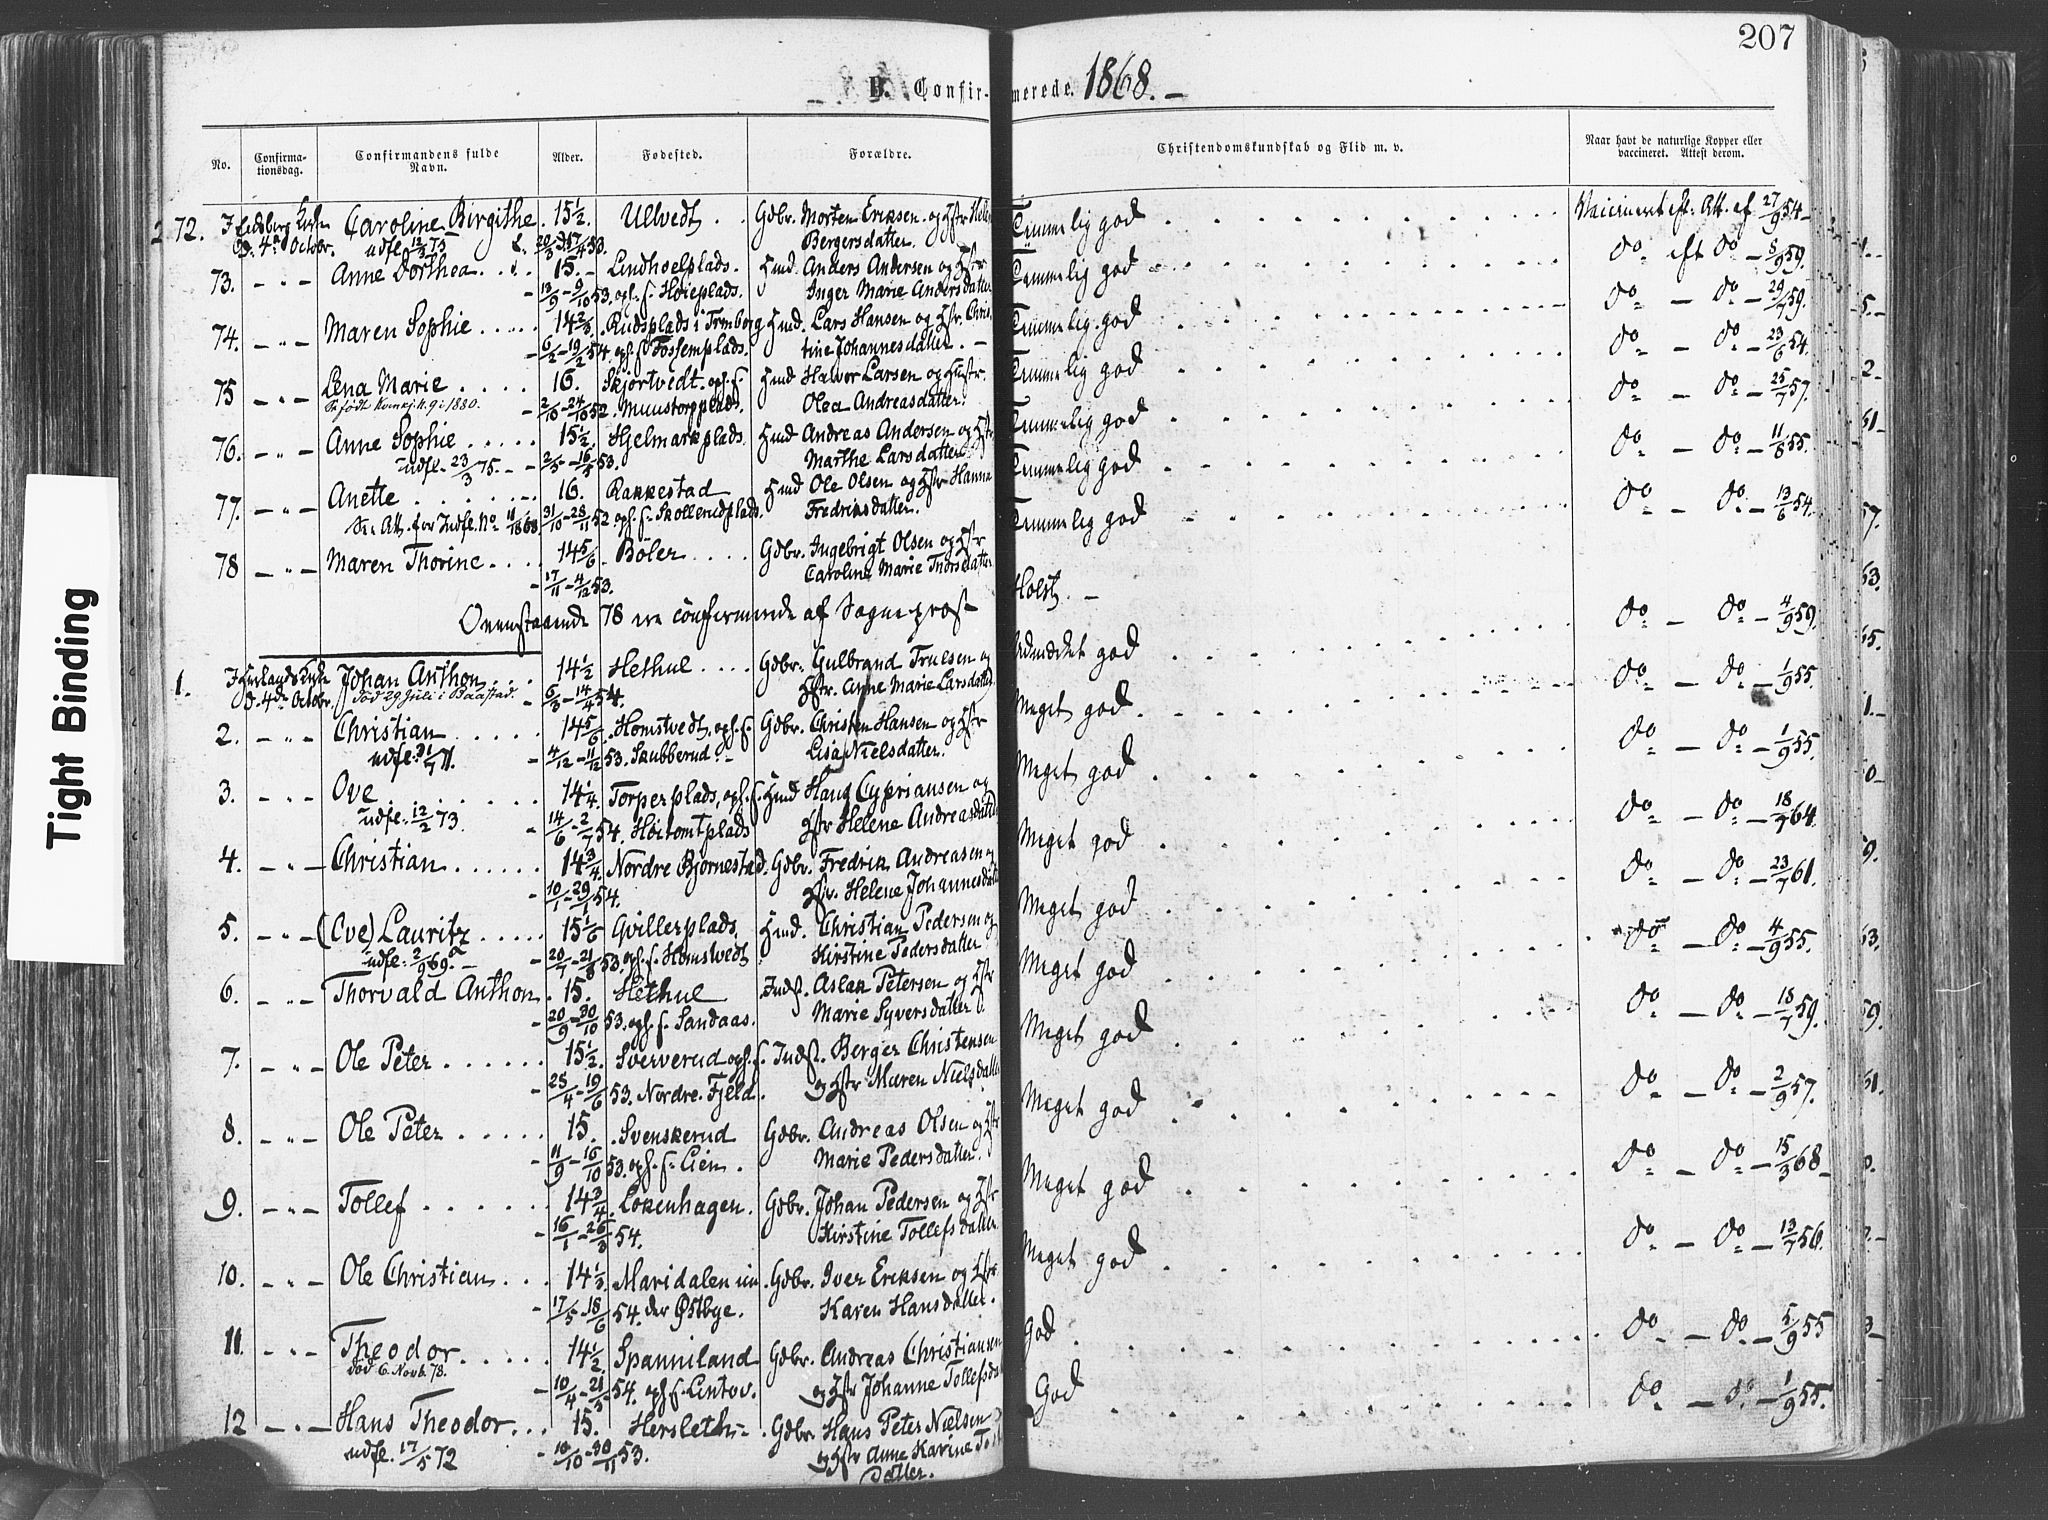 207
B. Confir- merede. 1868. –
No. Confirma-tionsdag. Confirmandens fulde Navn. Alder. Fødested. Forældre. Christendomskundskab og Flid m. v. Naar havt de naturlige Kopper eller vaccineret. Attest derom.
72. Caroline Birgithe. 15 1/2. Ullvedt . . Gdbr. Morten Eriksen og Hstr Temmelig god Vaccineret eft. Att. af 27/9 54
D. 4de Octobr. udfl. 12/3 75 Bergersdatter.
73. – „ – Anne Dorthea . . 15. – Lindhoelplads. Hmd. Anders Andersen og Hstr Temmelig god do eft do – 8/9 59.
13/9 – 9/10 53. oph. f. Høieplads. Inger Marie Andersdatter
74. – „ – Maren Sophie . . . . 14 2/3. Rudsplads i Trmborg Hmd. Lars Hansen og Hstr. Chris- Temmelig god do – do – 29/7 59.
6/2 – 19/2 54. oph. f. Fossemplads. tine Johannesdatter. –
75 – „ – Lena Marie . . . . 16. Skjørtvedt. oph. f. Hmd Halvor Larsen og Hustr. Temmelig god do – do – 23/6 54.
Se født Kvinkj. n. 9 i 1880. 2/10 – 24/10 52. Munstorpplads. Olea Andreasdatter.
76. – „ – Anne Sophie . . . . . 15 1/2. Hjelmarkplads. Hmd Andreas Andersen og Hstr Temmelig god do – do – 25/7 57.
udfl. 23/3 75. – 2/5 – 16/5 53. Marthe Larsdatter
77. – „ – Anette . . . . . . 16. Rakkestad Hmd Ole Olsen og Hstr Hanna Temmelig god do – do – 11/8 55.
Se Att. for Indfl. No 11/1868. 31/10 – 28/11 52 oph. f. Skollerudplads. Fredriksdatter.
78 – „ – Maren Thorine . . . . 14 5/6. Böler . . . . Gdbr. Ingebrigt Olsen og Hstr Temmelig god do – do – 13/6 54.
17/11 – 4/12 53. Caroline Marie Thorsdatter
Ovenstaaende 78 ere confirmerede af Sogneprest Holst. –
1. D. 4de Octobr. Johan Anthon . . . 14 1/2 Hethul . . . . Gdbr. Gulbrand Truelsen og Udmærket god do – do – 4/9 59.
Død 29 Juli i Baastad. 6/3 – 14/4 54. Hstr. Anne Marie Larsdatter.
2. – „ – Christian . . . . . 14 5/6. Homstvedt, oph. f. Gdbr. Christen Hansen og Hstr Meget god do – do – 1/9 55.
udfl. 31/7 71. 4/12 – 11/12 53. Skubberud. – Lisa Nielsdatter.
3. – „ – Ove . . . . . . 14 1/4. Torperplads, oph. f. Hmd Hans Cypriansen og Meget god do – do – 1/9 55.
udfl. 12/2 73. 14/6 – 2/7 54. Høitomtplads Hstr Helene Andreasdatter
4. – „ – Christian . . . . . . 14 3/4 Nordre Bjørnestad. Gdbr. Fredrik Andreasen og Meget god do – do – 18/7 64.
10/1 – 29/1 54. Hstr. Helene Johannesdatter
5. – „ – (Ove) Lauritz . . . . . 15 1/6 Gvillerplads. Hmd. Christian Pedersen og Meget god do – do – 23/7 61.
udfl. 2/9 69. – 20/7 – 21/8 53. oph. f. Homstvedt. Kirstine Pedersdatter
6. – „ – Thorvald Anthon. 15. Hethul Indst. Aslak Petersen og Hstr Meget god do – do – 4/9 55.
20/9 – 30/10 53. oph. f. Sandaas. Marie Syversdatter
7. – „ – Ole Peter . . . . . . 15 1/2. Sververud oph. f. Indst. Berger Christensen Meget god do – do – 18/7 59.
25/4 – 19/6 53. Nordre. Fjeld. og Hstr Maren Nielsdatter
8. – „ – Ole Peter . . . . . 15. Svenskerud Gdbr. Andreas Olsen og Hstr Meget god do – do – 2/9 57.
11/9 – 16/10 53. oph. f. Lien. Marie Pedersdatter.
9. – „ – Tollef . . . . . . 14 3/4. Lökenhagen. Gdbr. Johan Pedersen og Hstr Meget god do – do – 15/3 68 –
16/1 – 26/3 54. Kirstine Tollefsdatter.
10. – „ – Ole Christian . . . 14 1/3 Maridalen un- Gdbr. Iver Eriksen og Hstr. Meget god do – do – 13/7 56.
17/5 – 18/6 54. der Østbye. Karen Hansdatter.
11. – „ – Theodor . . . . . 14 1/2 Spanniland Gdbr. Andreas Christiansen God do – do – 5/9 55
død 6. Novb. 78. 10/4 – 21/5 54. oph. f. Lintov. og Hstr Johanne Tollefsdatter
12 – „ – Hans Theodor . . . 15. Hersleth – Gdbr. Hans Peter Nielsen God do – do – 1/9 55.
udfl. 17/5 72 10/10 – 30/11 53. og Hstr Anne Karine
datter.
Tight Binding